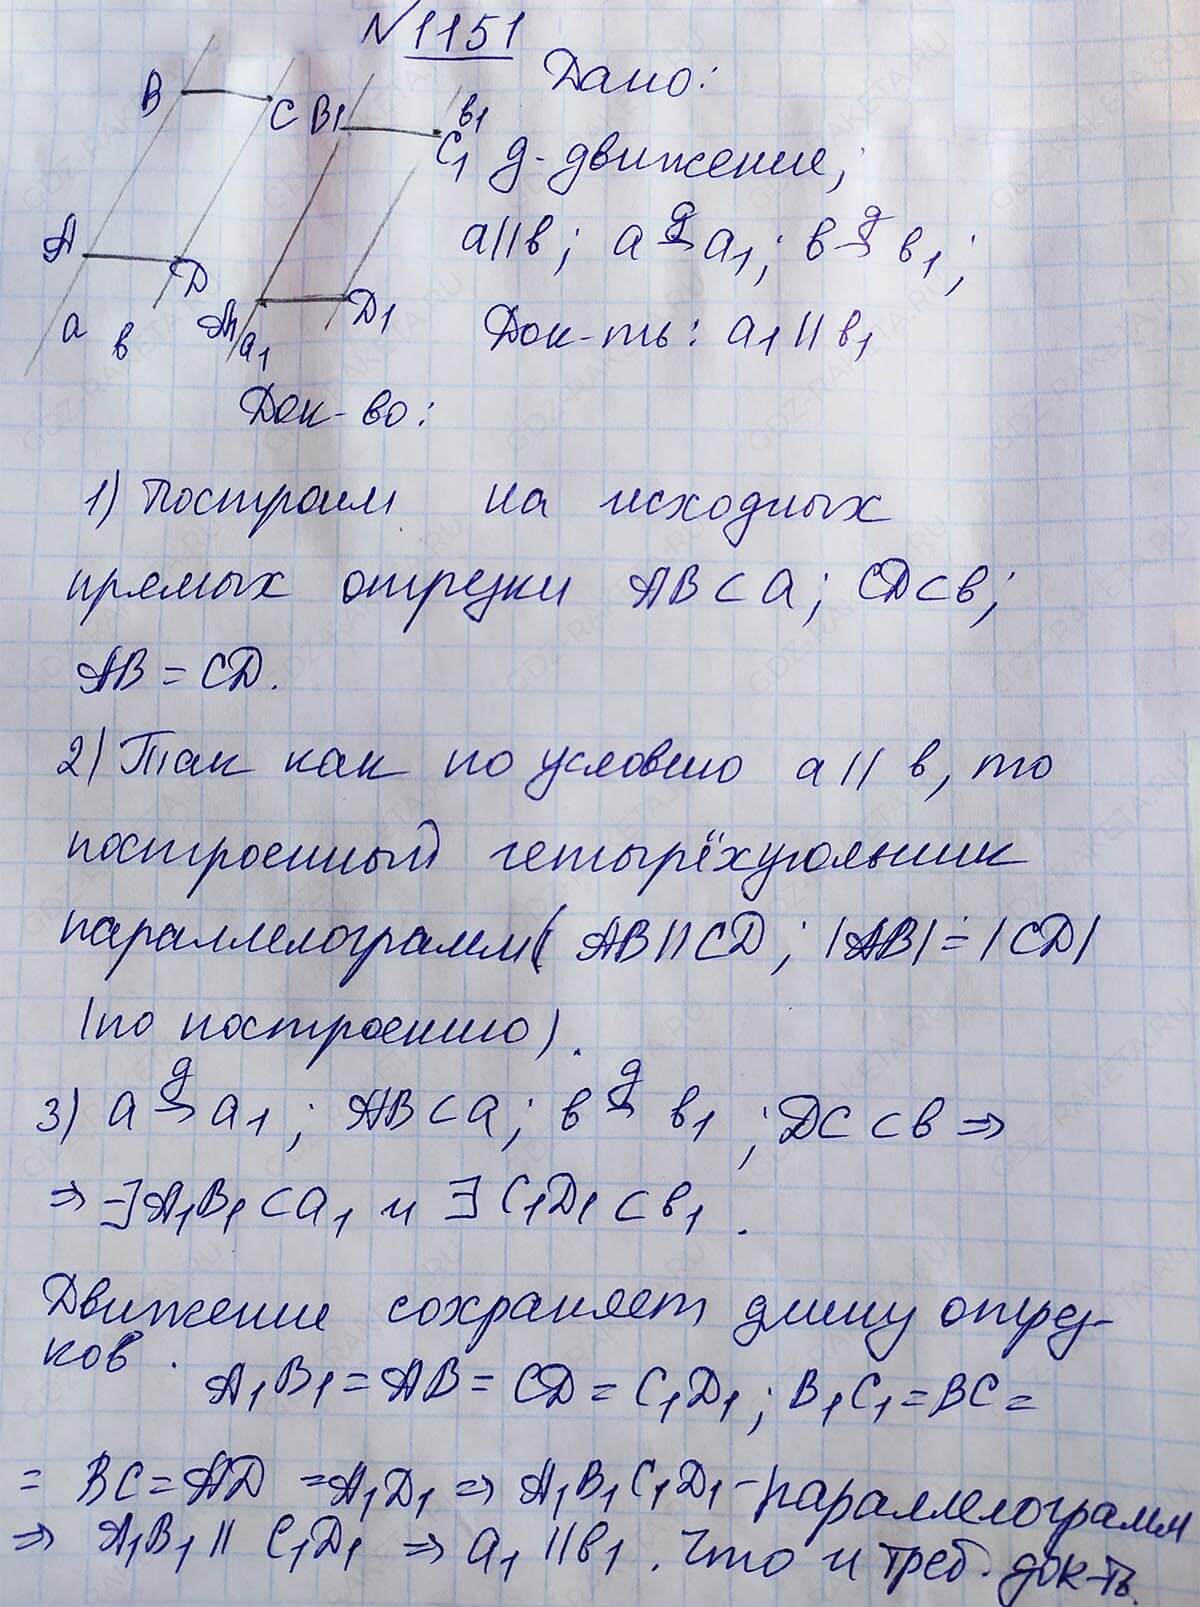 №1151
Дано:
B C B1 C1 в1
g-движение;
a||в; a g→ a1; в g→ в1;
A D A1 D1
a в a1
Док-ть: a1 || в1
Док-во:
1) Построим на исходных
прямых отрезки AB⊂a; CD⊂в;
AB = CD.
2) Так как по условию a|| в, то
построенный четырёхугольник
параллелограмм( AB||CD; |AB|=|CD|
(по построению).
3) a g→ a1; AB⊂a; в g→ в1; DC⊂в ⇒
⇒ ∃A1B1⊂a1 и ∃ C1D1⊂в1.
Движение сохраняет длину отрез-
ков. A1B1 = AB = CD = C1D1; B1C1 = BC =
= BC = AD = A1D1 ⇒ A1B1C1D1 - параллелограмм
⇒ A1B1 || C1D1 ⇒ a1 ||в1. Что и треб. док-ть.
GDZ-RAKETA.RU